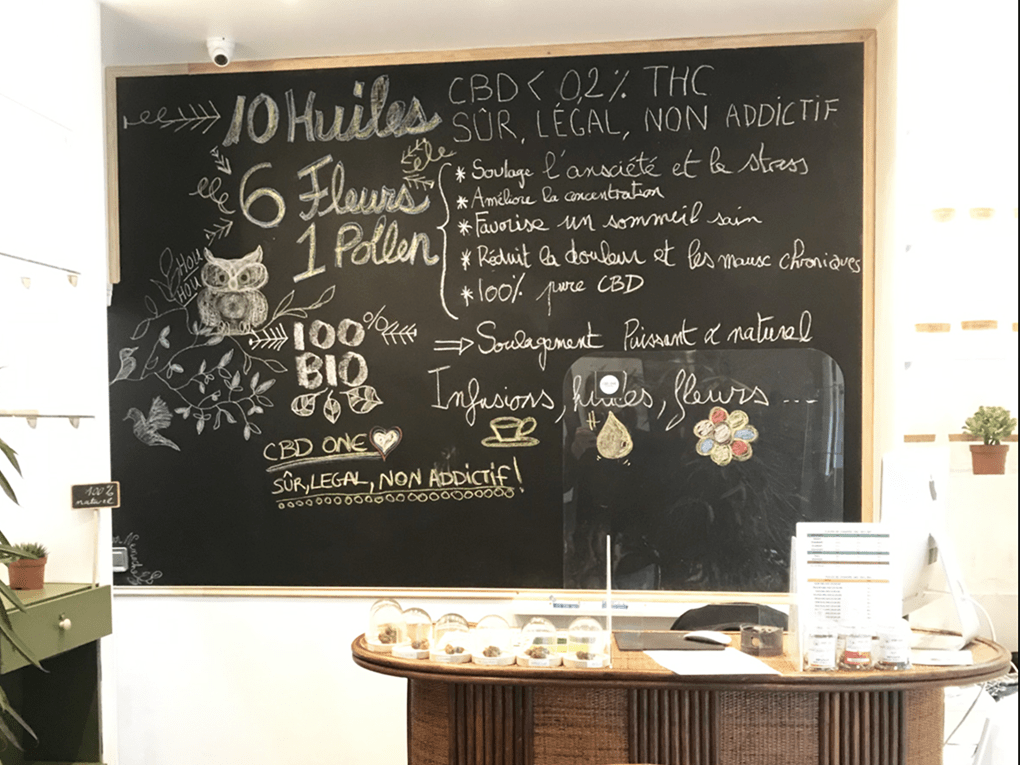 10 Huiles
6 Fleurs
1 Pollen
CBD < 0,2% THC
SÛR, LÉGAL, NON ADDICTIF
* Soulage l'ansciété et le stress
* Améliore la concentration
* Favorise un sommeil sain
* Réduit la douleur et les maux chroniques
* 100% pure CBD
HOU
HOU
100%
BIO
⇒ Soulagement Puissant & naturel
Infusions, huiles, fleurs ...
CBD ONE
SÛR, LEGAL, NON ADDICTIF!
100%
naturel